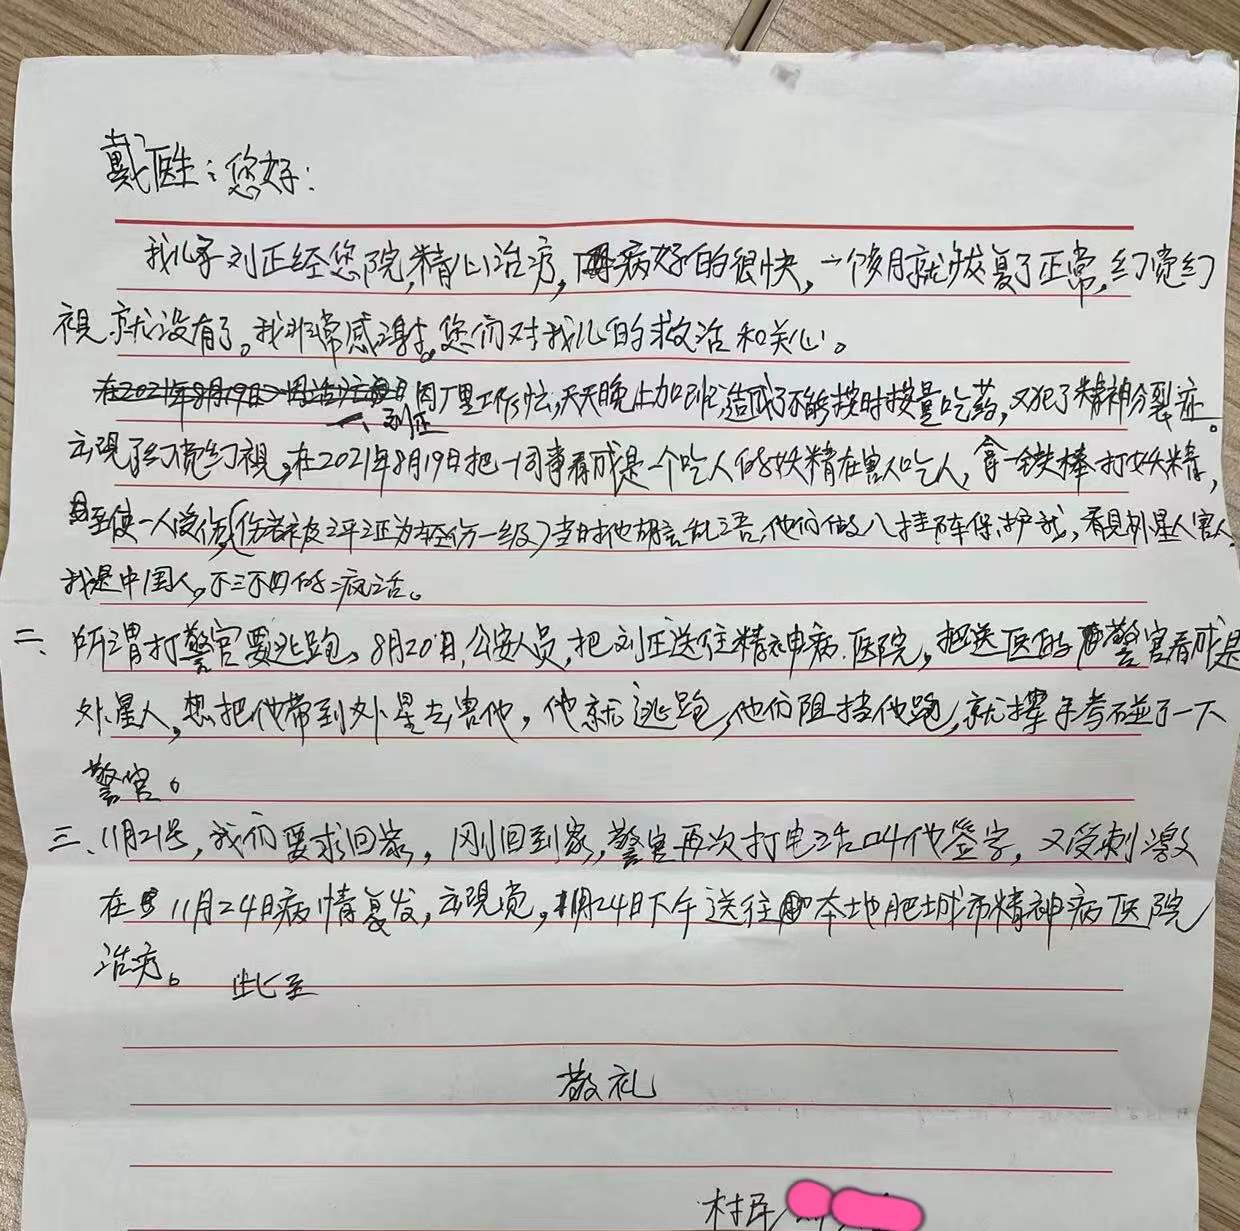 戴医生：您好：
我儿子刘正经您院精心治疗，病好的很快，一个多月就恢复了正常，幻觉幻
视就没有了。我非常感谢。您们对我儿的救治和关心。
在2021年8月19日 因厂里工作忙，天天晚上加班，造成了不能按时按量吃药，又犯了精神分裂症。
一、刘正
出现了幻觉幻视，在2021年8月19日把一同事看成是一个吃人的妖精在害人吃人，拿一铁棒打妖精，
至使一人受伤（伤者被评证为轻伤一级）当时他胡言乱语，他们做八挂阵保护我，看见外星人害人，
我是中国人，不三不四的疯话。
二、所谓打警官要逃跑。8月20日，公安人员，把刘正送往精神病医院，把送医的警官看成是
外星人，想把他带到外星去害他，他就逃跑，他们阻挡他跑，就撑手考碰了一下
警官。
三、11月21号，我们要求回家，刚回到家，警官再次打电话叫他签字，又受刺激
在11月24日病情复发，出现觉，11月24日下午送往本地肥城市精神病医院
治疗。 此至
敬礼
村民